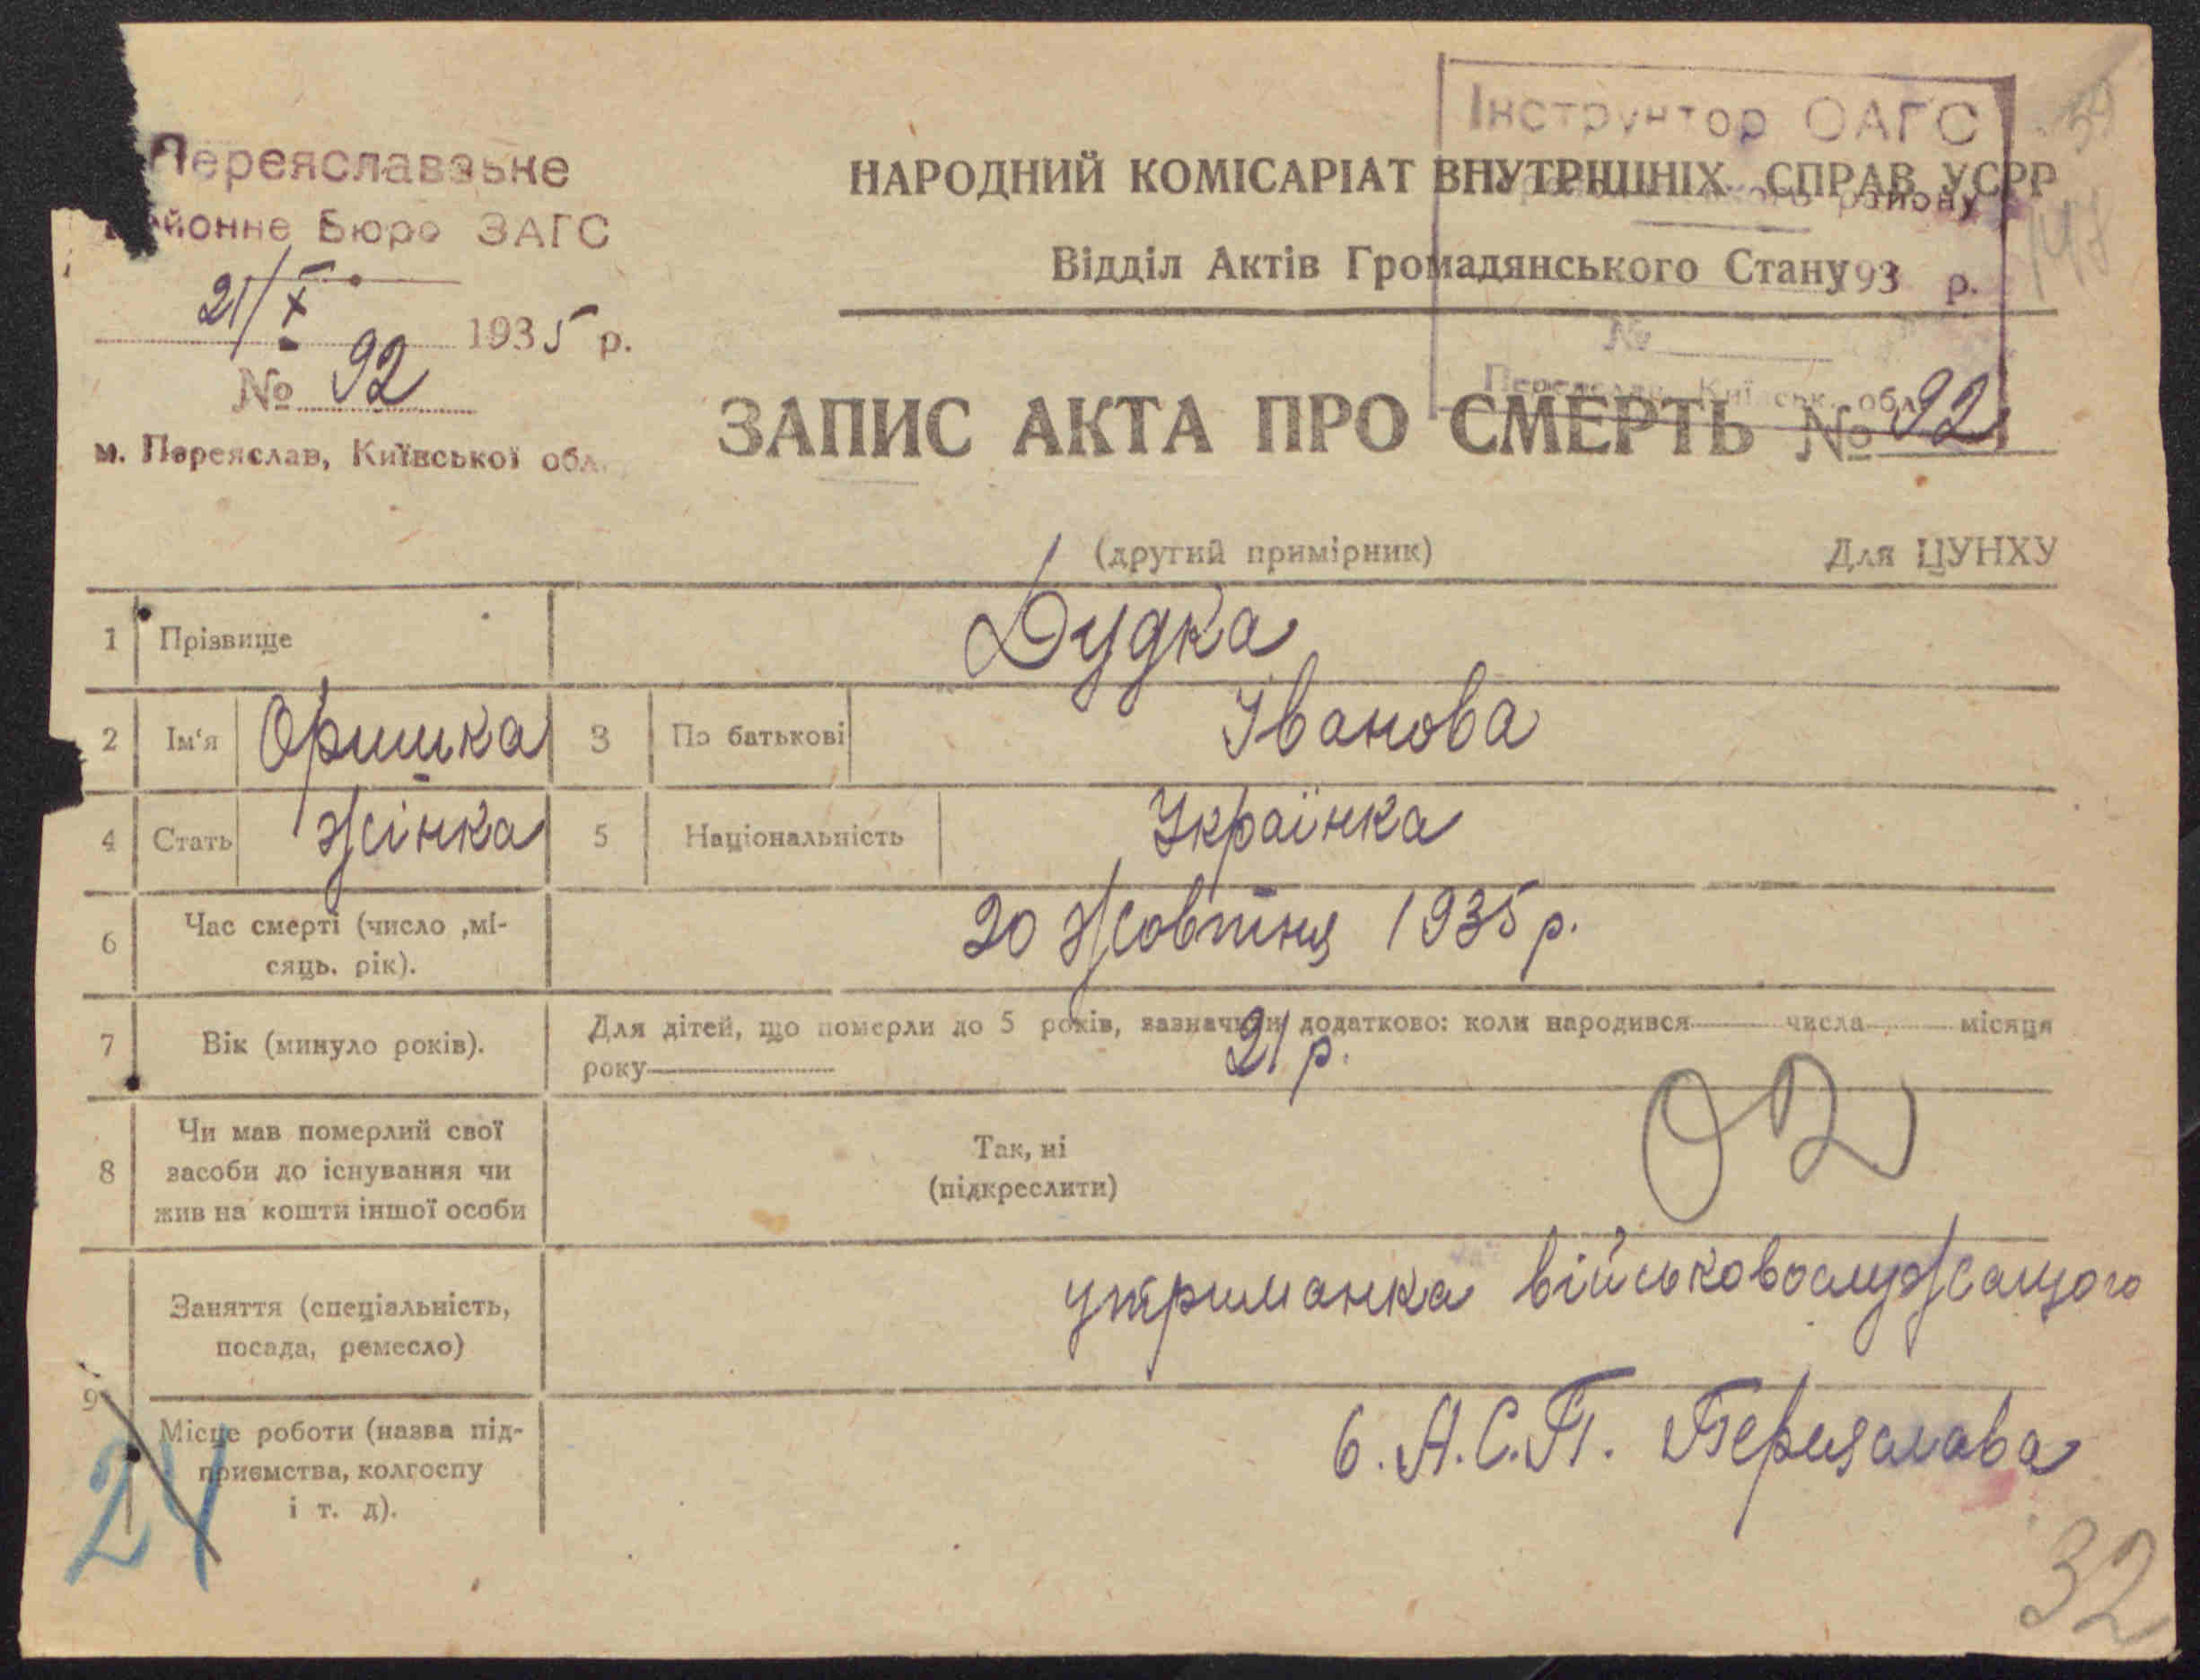 Переяславське
Районне Бюро ЗАГС
21/X 1935 р.
№ 92
м. Переяслав, Київської обл.
Інструктор ОАГС
району
193 р.
№
Переяслав, Київськ. обл.
НАРОДНИЙ КОМІСАРІАТ ВНУТРІШНІХ СПРАВ УСРР
Відділ Актів Громадянського Стану
147
ЗАПИС АКТА ПРО СМЕРТЬ № 92
(другий примірник) Для ЦУНХУ
1 Прізвище Дудка
2 Ім'я Оришка 3 По батькові Іванова
4 Стать жінка 5 Національність Українка
6 Час смерті (число ,мі-
сяць. рік). 20 жовтня 1935 р.
7 Вік (минуло років). Для дітей, що померли до 5 років, зазначити додатково: коли народився числа місяця
року 21 р.
8 Чи мав померлий свої
засоби до існування чи
жив на кошти іншої особи
Так, ні
(підкреслити)
02
9 Заняття (спеціальність,
посада, ремесло)
утриманка військовослужащого
Місце роботи (назва під-
приємства, колгоспу
і т. д).
б. А.С.П. Переяслава
24
32